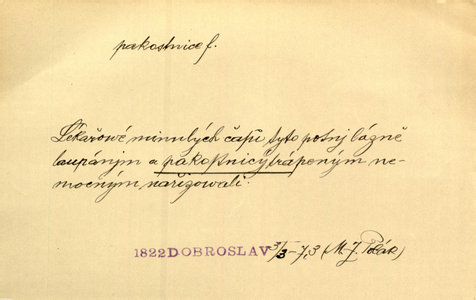 pakostnice f.
Lékařowé minulých časů tyto potnj lázně
laupáním a pákostnicý trápeným ne-
mocným nařizowali.
1822 DOBROSLAV 3/3 - 7,3 (M. J. Polák)